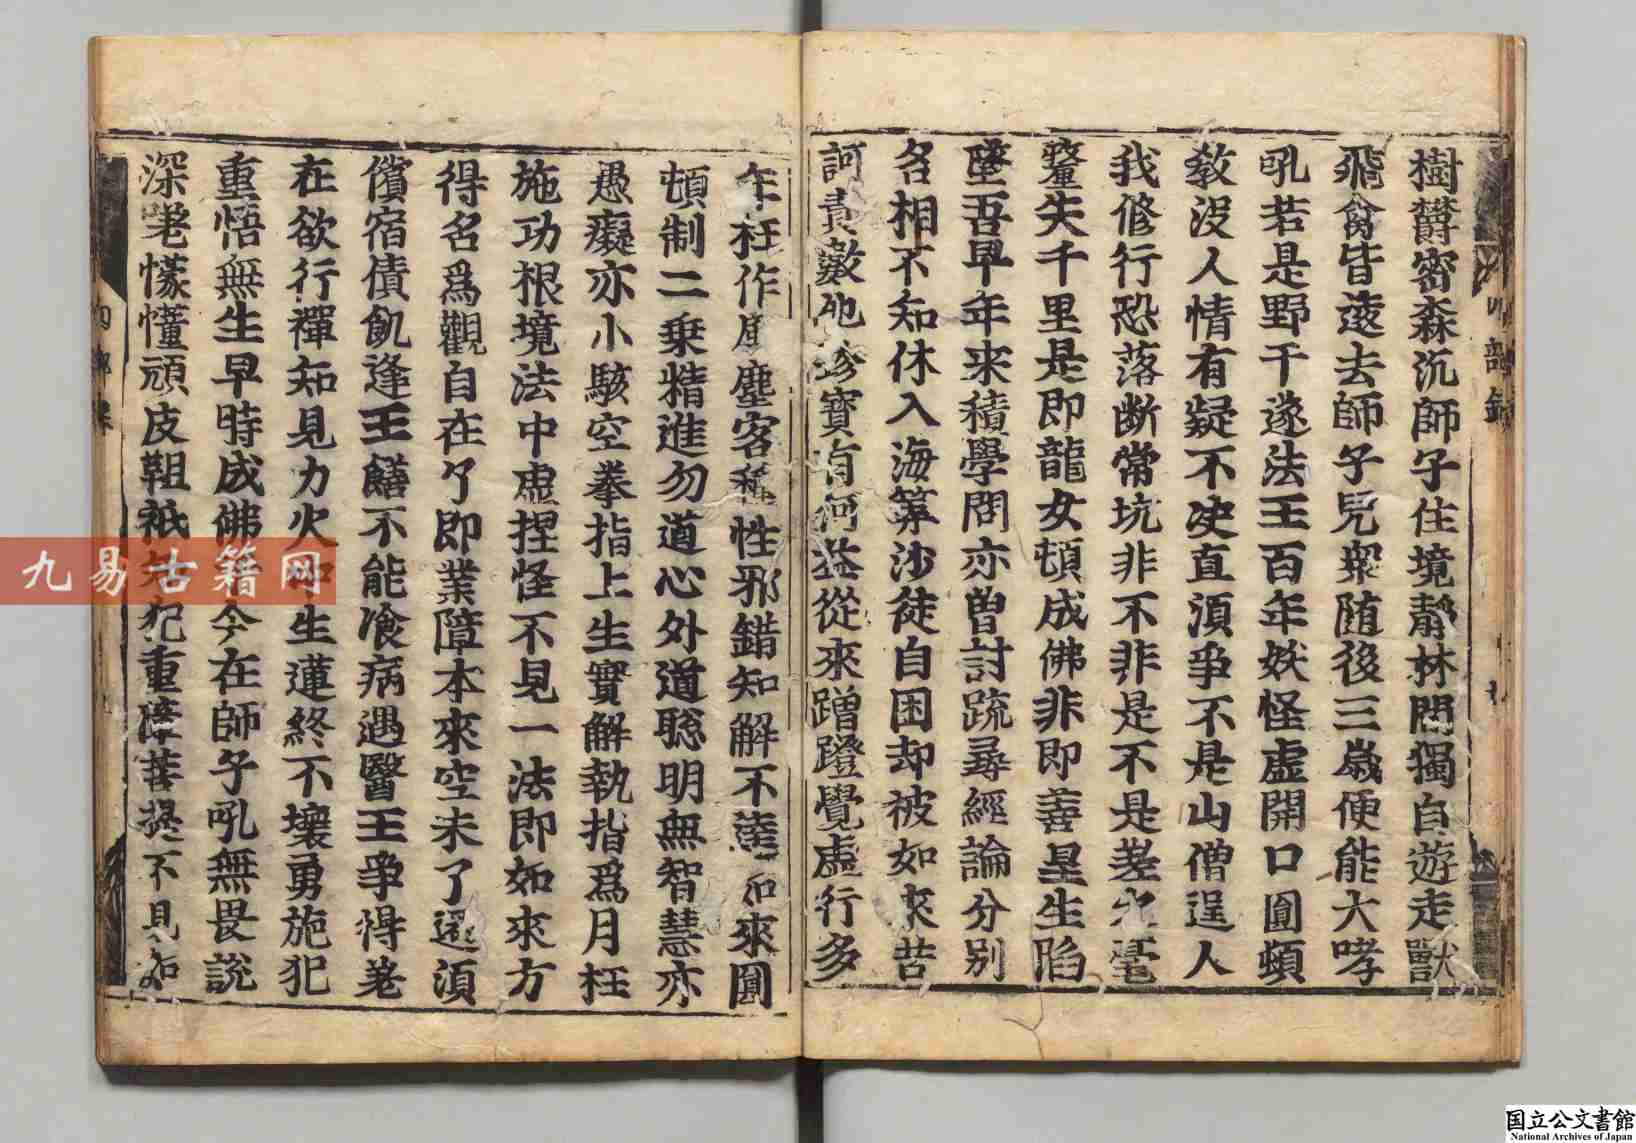 樹欝密森沉師子住境靜林間獨自遊走獸
飛禽皆遠去師子兒衆随後三歳便能大哮
吼若是野干逐法王百年妖怪虚開口圓頓
教没人情有疑不决直須爭不是山僧逞人
我修行恐落断常坑非不非是不是差之毫
釐失千里是即龍女頓成佛非即善星生陷
墜吾早年来積學問亦曽討疏尋經論分别
名相不知休入海筭沙徒自困却被如來苦
訶責數他珍寳有何益從來蹭蹬覺虚行多
年枉作風塵客種性邪錯知解不達如來圓
頓制二乗精進勿道心外道聡明無智慧亦
愚癡亦小騃空拳指上生實解執指爲月枉
施功根境法中虚捏怪不見一法即如來方
得名爲觀自在了即業障本來空未了還須
償宿債飢逢王饍不能飡病遇醫王爭得差
在欲行禪知見力火中生蓮終不壞勇施犯
重悟無生早時成佛今在師子吼無畏說
深嗟懞懂頑皮靼祇知犯重障菩提不見如
九易古籍网
国立公文書館
National Archives of Japan